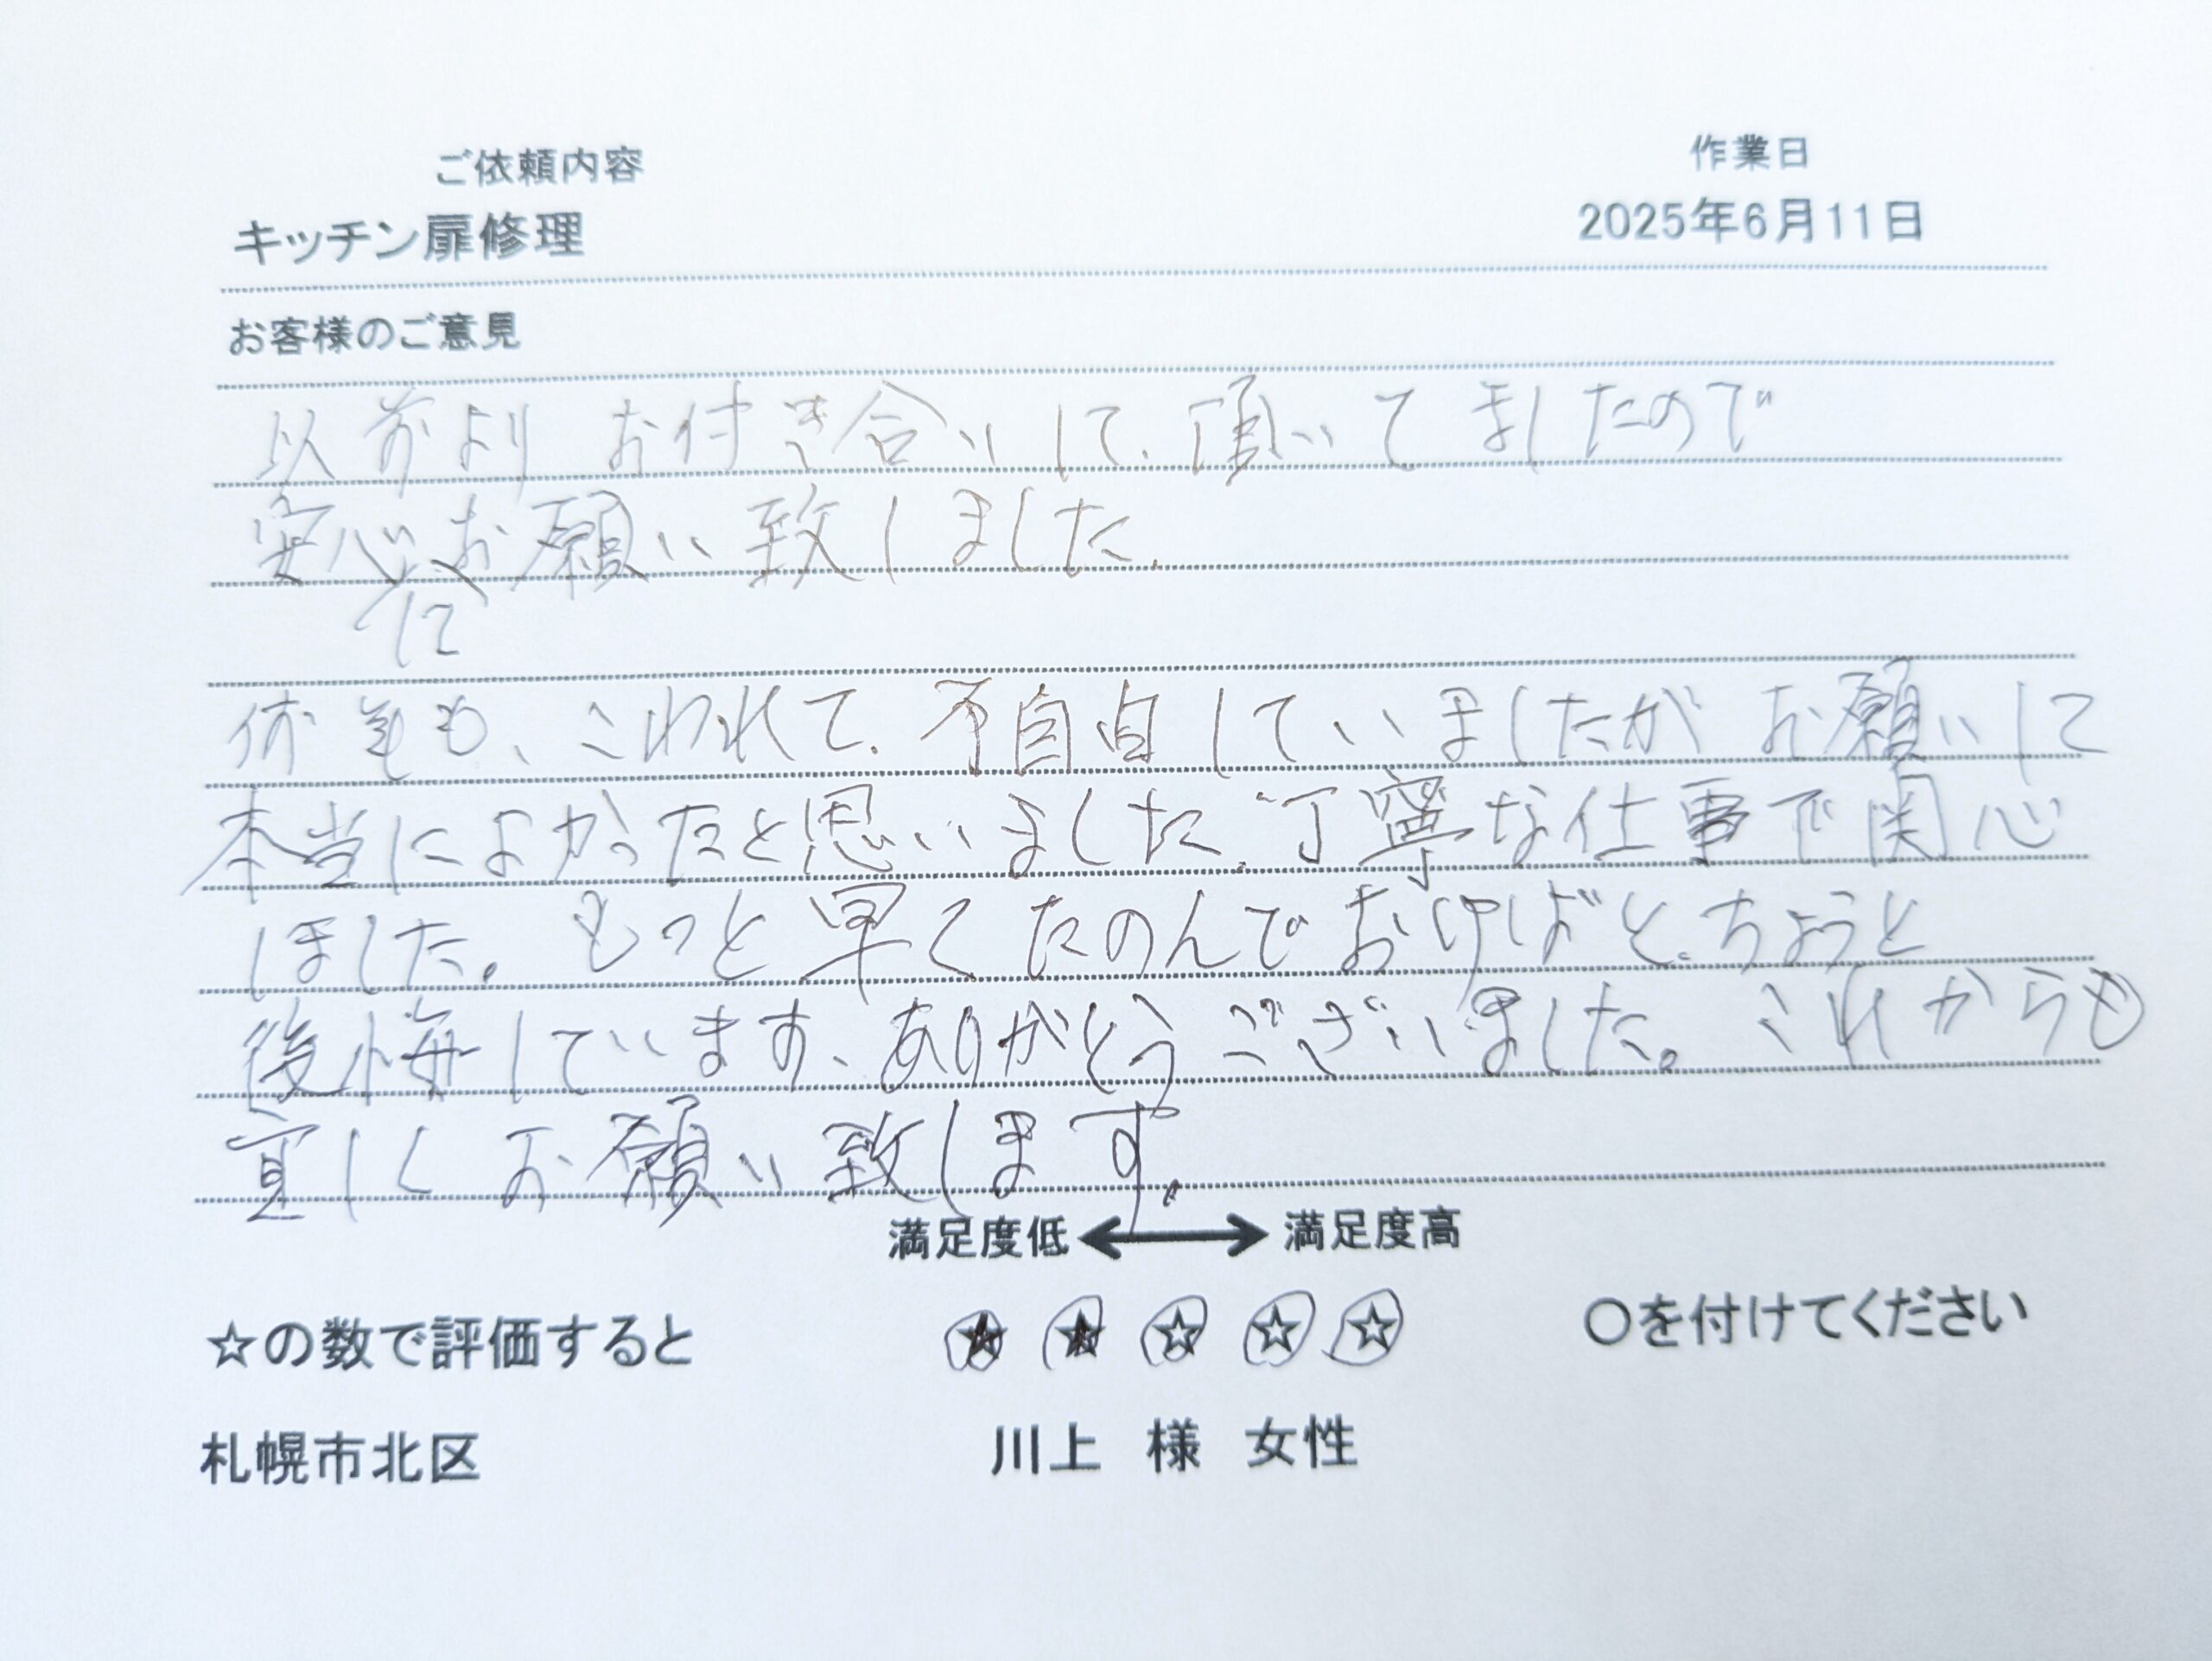 ご依頼内容
作業日
キッチン扉修理
2025年6月11日
お客様のご意見
以前より お付き合いして、頂いてましたので
安心にお願い致しました。
何年も、こわれて、不自由していましたが お願いして
本当によかったと思いました。丁寧な仕事で関心
しました。もっと早くたのんでおけばと、ちょうと
後悔しています、ありがとうございました。これからも
宜しくお願い致します。
満足度低 ⟷ 満足度高
☆の数で評価すると
★ ★ ☆ ☆ ☆
○を付けてください
札幌市北区
川上 様 女性